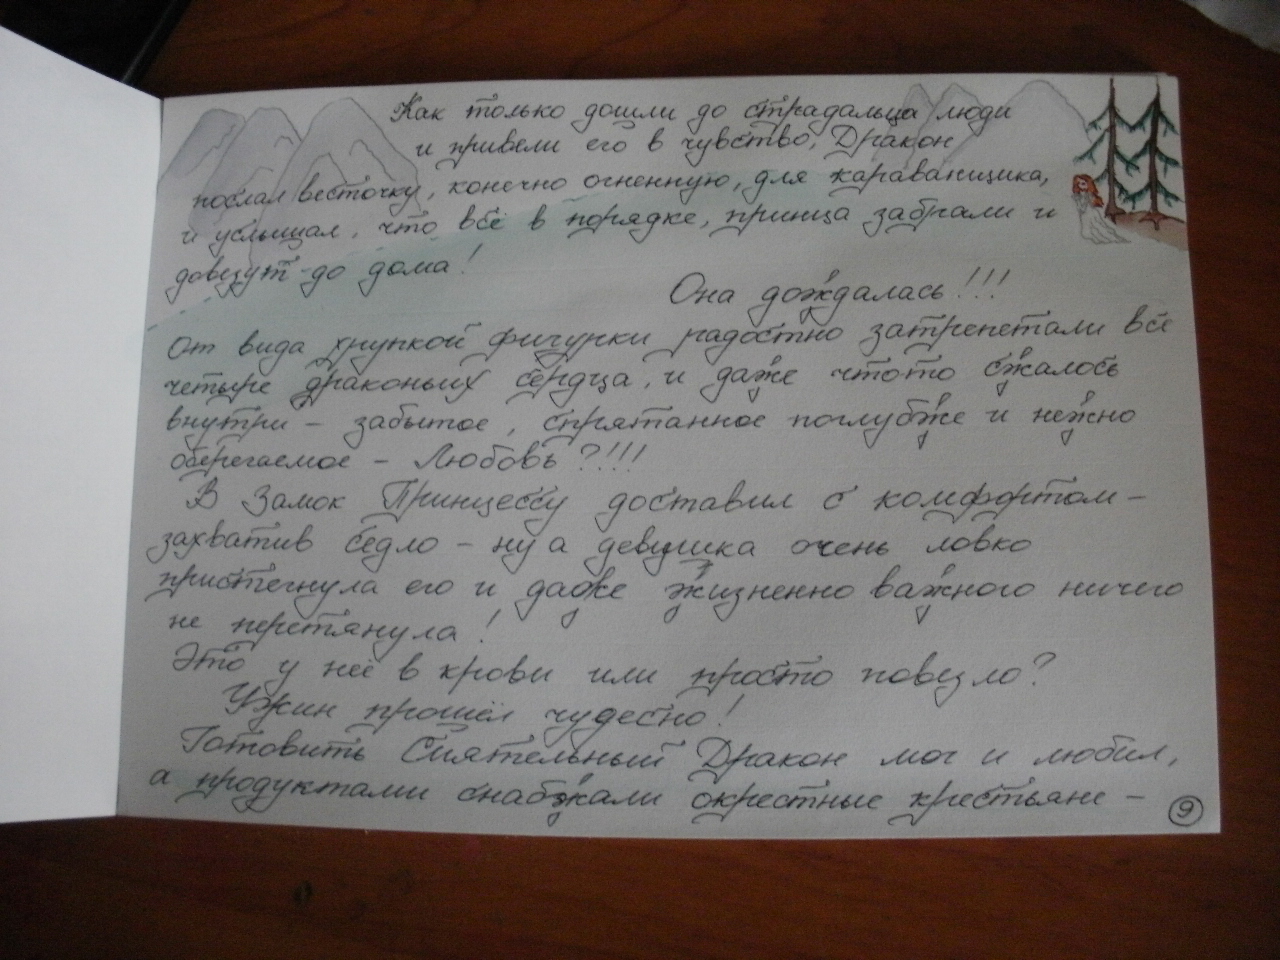 Как только дошли до страдальца люди
и привели его в чувство, Дракон
послал весточку, конечно огненную, для караванщика,
и услышал, что всё в порядке, принца забрали и
довезут до дома!
Она дождалась!!!
От вида хрупкой фигурки радостно затрепетали все
четыре драконьих сердца, и даже чтото сжалось
внутри – забытое, спрятанное поглубже и нежно
оберегаемое – Любовь?!!!
В Замок Принцессу доставил с комфортом –
захватив седло – ну а девушка очень ловко
пристегнула его и даже жизненно важного ничего
не перетянула!
Это у неё в крови или просто повезло?
Ужин прошёл чудесно!
Готовить Сиятельный Дракон мог и любил,
а продуктами снабжали окрестные крестьяне –
9